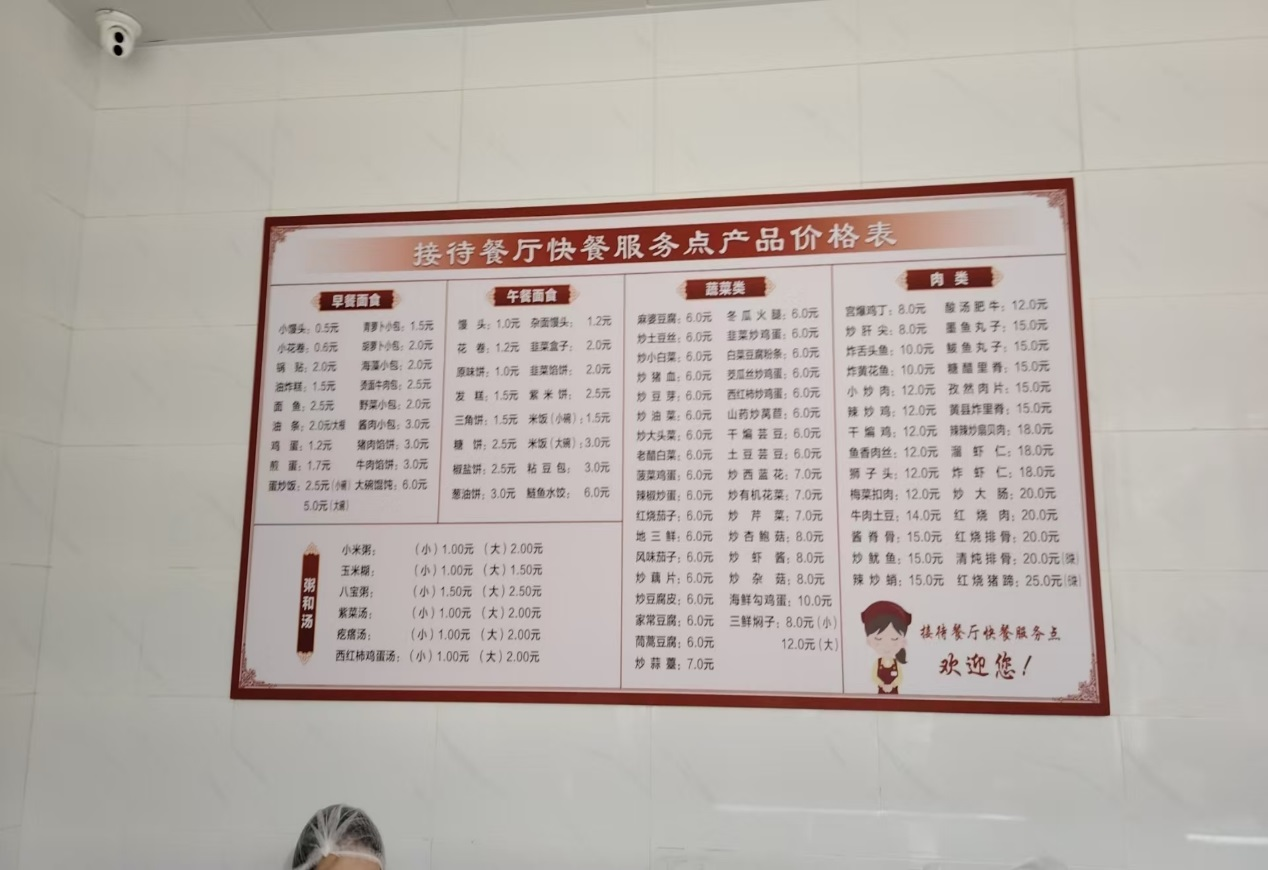 接待餐厅快餐服务点产品价格表
早餐面食
小馒头：0.5元 青萝卜小包：1.5元
小花卷：0.6元 胡萝卜小包：2.0元
锅贴：2.0元 海藻小包：2.0元
油炸糕：1.5元 烫面牛肉包：2.5元
面鱼：2.5元 野菜小包：2.0元
油条：2.0元大根 酱肉小包：3.0元
鸡蛋：1.2元 猪肉馅饼：3.0元
煎蛋：1.7元 牛肉馅饼：3.0元
蛋炒饭：2.5元(小碗) 大碗馄饨：6.0元
5.0元(大碗)
午餐面食
馒头：1.0元 杂面馒头：1.2元
花卷：1.2元 韭菜盒子：2.0元
原味饼：1.0元 韭菜馅饼：2.0元
发糕：1.5元 紫米饼：2.5元
三角饼：1.5元 米饭(小碗)：1.5元
糖饼：2.5元 米饭(大碗)：3.0元
椒盐饼：2.5元 粘豆包：3.0元
葱油饼：3.0元 鲅鱼水饺：6.0元
粥和汤
小米粥：（小）1.00元（大）2.00元
玉米糊：（小）1.00元（大）1.50元
八宝粥：（小）1.50元（大）2.50元
紫菜汤：（小）1.00元（大）2.00元
疙瘩汤：（小）1.00元（大）2.00元
西红柿鸡蛋汤：（小）1.00元（大）2.00元
蔬菜类
麻婆豆腐：6.0元 冬瓜火腿：6.0元
炒土豆丝：6.0元 韭菜炒鸡蛋：6.0元
炒小白菜：6.0元 白菜豆腐粉条：6.0元
炒猪血：6.0元 茭瓜丝炒鸡蛋：6.0元
炒豆芽：6.0元 西红柿炒鸡蛋：6.0元
炒油菜：6.0元 山药炒莴苣：6.0元
炒大头菜：6.0元 干煸芸豆：6.0元
老醋白菜：6.0元 土豆芸豆：6.0元
菠菜鸡蛋：6.0元 炒西蓝花：7.0元
辣椒炒蛋：6.0元 炒有机花菜：7.0元
红烧茄子：6.0元 炒芹菜：7.0元
地三鲜：6.0元 炒杏鲍菇：8.0元
风味茄子：6.0元 炒虾酱：8.0元
炒藕片：6.0元 炒杂菇：8.0元
炒豆腐皮：6.0元 海鲜勾鸡蛋：10.0元
家常豆腐：6.0元 三鲜焖子：8.0元(小)
茼蒿豆腐：6.0元 12.0元(大)
炒蒜薹：7.0元
肉类
宫爆鸡丁：8.0元 酸汤肥牛：12.0元
炒肝尖：8.0元 墨鱼丸子：15.0元
炸舌头鱼：10.0元 鲅鱼丸子：15.0元
炸黄花鱼：10.0元 糖醋里脊：15.0元
小炒肉：12.0元 孜然肉片：15.0元
辣炒鸡：12.0元 黄县炸里脊：15.0元
干煸鸡：12.0元 辣辣炒扇贝肉：18.0元
鱼香肉丝：12.0元 溜虾仁：18.0元
狮子头：12.0元 炸虾仁：18.0元
梅菜扣肉：12.0元 炒大肠：20.0元
牛肉土豆：14.0元 红烧肉：20.0元
酱脊骨：15.0元 红烧排骨：20.0元
炒鱿鱼：15.0元 清炖排骨：20.0元
辣炒蛸：15.0元 红烧猪蹄：25.0元
接待餐厅快餐服务点
欢迎您！